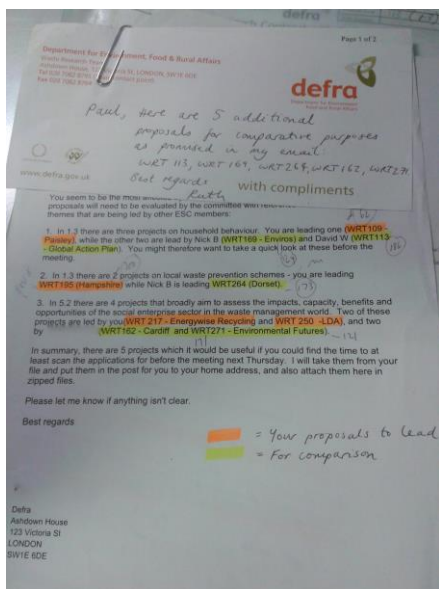 defra
Page 1 of 2
Department for Environment, Food & Rural Affairs
Waste Research Team
Ashdown House, 123 Victoria St, LONDON, SW1E 6DE
Tel 020 7082
Fax 020 7082
defra
Department for Environment
Food and Rural Affairs
Paul, Here are 5 additional
proposals for comparative purposes
as promised in my email:
WRT 113, WRT 169, WRT 264, WRT 162, WRT 271
Best regards
Ruth
www.defra.gov.uk
with compliments
You seem to be the most
proposals will need to be evaluated by the committee with
themes that are being led by other ESC members:
1. In 1.3 there are three projects on household behaviour. You are leading one (WRT109 -
Paisley), while the other two are lead by Nick B (WRT169 - Enviros) and David W (WRT113
- Global Action Plan). You might therefore want to take a quick look at these before the
meeting.
2. In 1.3 there are 2 projects on local waste prevention schemes - you are leading
WRT185 (Hampshire) while Nick B is leading WRT264 (Dorset).
3. In 5.2 there are 4 projects that broadly aim to assess the impacts, capacity, benefits and
opportunities of the social enterprise sector in the waste management world. Two of these
projects are led by you(WRT 217 - Energywise Recycling and WRT 250 -LDA), and two
by (WRT162 - Cardiff and WRT271 - Environmental Futures).
In summary, there are 5 projects which it would be useful if you could find the time to at
least scan the applications for before the meeting next Thursday. I will take them from your
file and put them in the post for you to your home address, and also attach them here in
zipped files.
Please let me know if anything isn't clear.
Best regards
= Your proposals to lead
= For comparison
Defra
Ashdown House
123 Victoria St
LONDON
SW1E 6DE